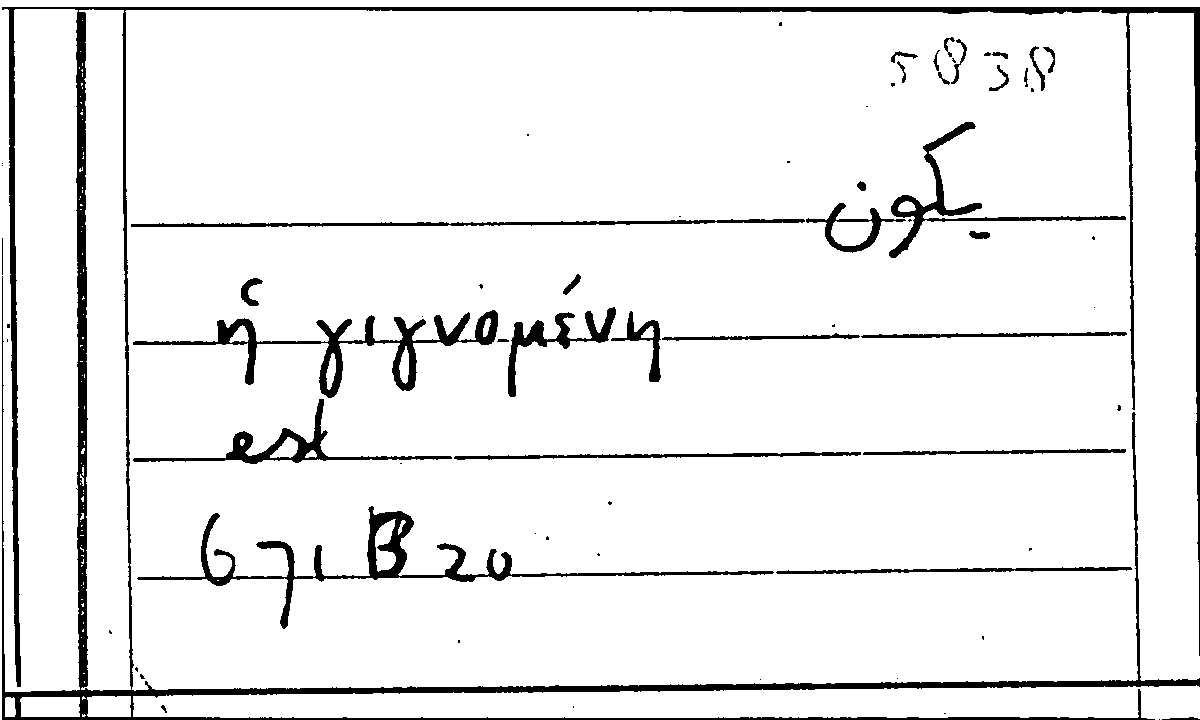 5838
يكون
ἡ γιγνομένη
est
671 B 20